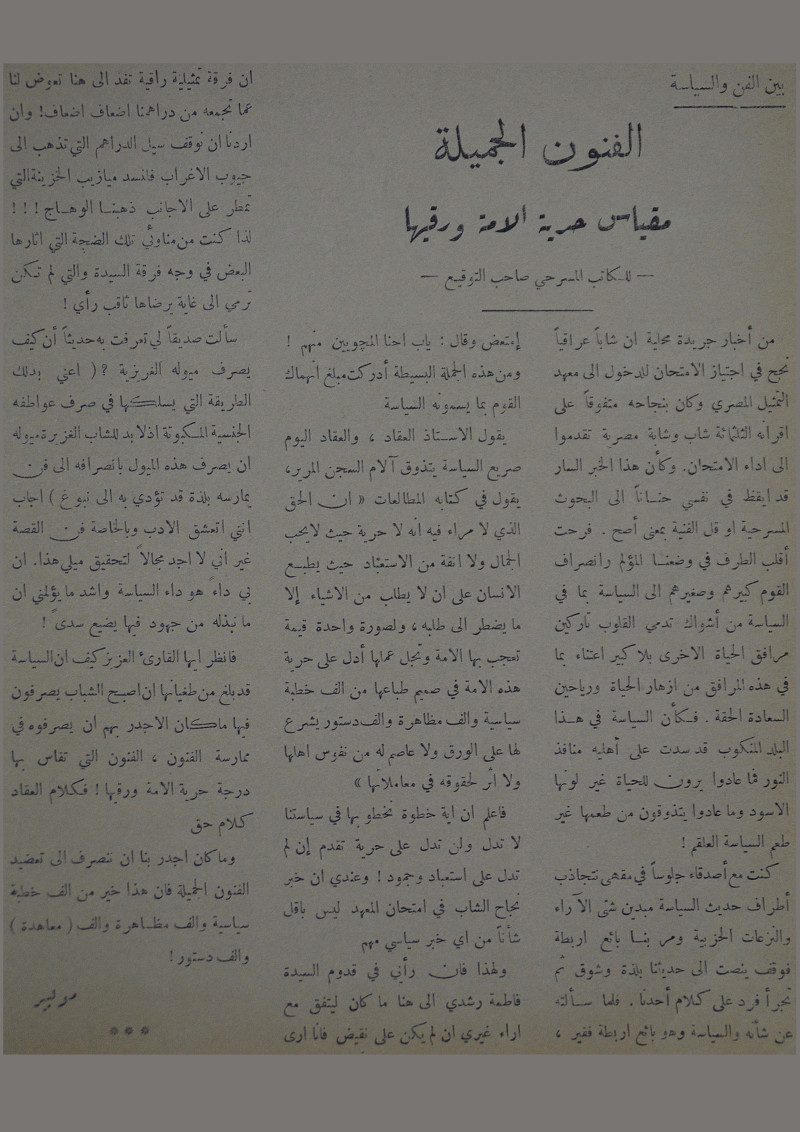 بين الفن والسياسة
الفنون الجميلة
مقياس حرية الامة ورقيها
— للكاتب المسرحي صاحب التوقيع —
من أخبار جريدة محلية ان شاباً عراقياً
نجح في اجتياز الامتحان للدخول الى معهد
التمثيل المصري وكان بنجاحه متفوقاً على
اقرانه الثلثمائة شاب وشابة مصرية تقدموا
الى اداء الامتحان. وكأن هذا الخبر السار
قد ايقظ في نفسي حناناً الى البحوث
المسرحية او قل الفنية بمعنى أصح . فرحت
أقلب الطرف في وضعنا المؤلم وانصراف
القوم كبيرهم وصغيرهم الى السياسة بما في
السياسة من أشواك تدمي القلوب تاركين
مرافق الحياة الاخرى بلا كبير اعتناء بما
في هذه المرافق من ازهار الحياة ورياحين
السعادة الحقة . فكأن السياسة في هذا
البلد المنكوب قد سدت على أهليه منافذ
النور فما عادوا يرون للحياة غير لونها
الاسود وما عادوا يتذوقون من طعمها غير
طعم السياسة العلقم !
كنت مع أصدقاء جلوساً في مقهى نتجاذب
أطراف حديث السياسة مبدين شتى الآراء
والنزعات الحزبية ومر بنا بائع اربطة
فوقف ينصت الى حديثنا بلذة وشوق ثم
تجرأ فرد على كلام أحدنا . فلما سألته
عن شأنه والسياسة وهو بائع اربطة فقير ،
إمتعض وقال : ياب احنا المچويين منهم !
ومن هذه الجملة البسيطة أدركت مبلغ انهماك
القوم بما يسمونه السياسة
يقول الاستاذ العقاد ، والعقاد اليوم
صريع السياسة يتذوق آلام السجن المرير،
يقول في كتابه المطالعات « ان الحق
الذي لا مراء فيه انه لا حرية حيث لا يحب
الجمال ولا انفة من الاستعباد حيث يطبع
الانسان على ان لا يطلب من الاشياء إلا
ما يضطر الى طلبه ، ولصورة واحدة قيمة
تعجب بها الامة وتجل عملها أدل على حرية
هذه الامة في صميم طباعها من الف خطبة
سياسية والف مظاهرة والف دستور يشرع
لها على الورق ولا عاصم له من نفوس اهلها
ولا اثر لحقوقه في معاملاتها »
فاعلم ان اية خطوة نخطو بها في سياستنا
لا تدل ولن تدل على حرية تقدم إن لم
تدل على استعباد وجمود ! وعندي ان خبر
نجاح الشاب في امتحان المعهد ليس باقل
شأناً من اي خبر سياسي مهم
ولهذا فان رأيي في قدوم السيدة
فاطمة رشدي الى هنا ما كان ليتفق مع
اراء غيري ان لم يكن على نقيض فانا ارى
ان فرقة تمثيلية راقية تفد الى هنا تعوض لنا
عما تجمعه من دراهمنا اضعاف اضعاف! وان
اردنا ان نوقف سيل الدراهم التي تذهب الى
جيوب الاغراب فلنسد ميازيب الخزينة التي
تمطر على الاجانب ذهبنا الوهاج ! ! !
لذا كنت من مناوئي تلك الضجة التي اثارها
البعض في وجه فرقة السيدة والتي لم تكن
ترمي الى غاية يرضاها ثاقب رأي !
سألت صديقاً لي تعرفت به حديثاً أن كيف
يصرف ميوله الغريزية ? ( اعني بذلك
الطريقة التي يسلكها في صرف عواطفه
الجنسية المكبوتة اذ لا بد للشاب الغزيرة ميوله
ان يصرف هذه الميول بانصرافه الى فن
يمارسه بلذة قد تؤدي به الى نبوغ ) اجاب
انني اتعشق الادب وبالخاصة فن القصة
غير اني لا اجد مجالاً لتحقيق ميلي هذا. ان
بي داء هو داء السياسة واشد ما يؤلمني ان
ما نبذله من جهود فيها يضيع سدى !
فانظر ايها القارئ العزيز كيف ان السياسة
قد بلغ من طغيانها ان اصبح الشباب يصرفون
فيها ما كان الاجدر بهم ان يصرفوه في
ممارسة الفنون ، الفنون التي تقاس بها
درجة حرية الامة ورقيها ! فكلام العقاد
كلام حق
وما كان اجدر بنا ان ننصرف الى تعضيد
الفنون الجميلة فان هذا خير من الف خطبة
سياسية والف مظاهرة والف ( معاهدة )
والف دستور !
موليير
***